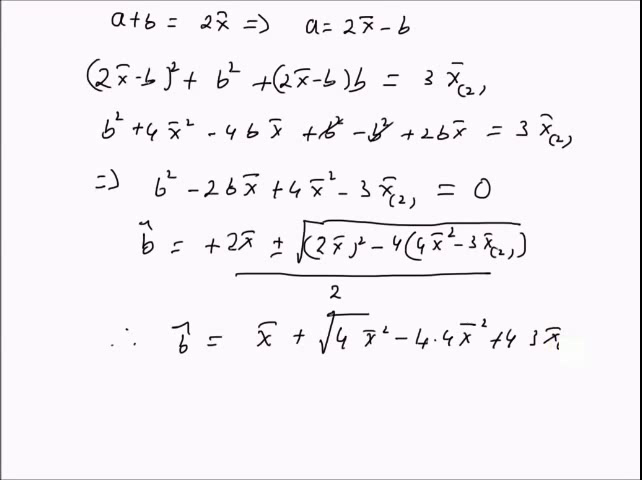 a+b = 2x̄ => a = 2x̄ - b
(2x̄-b)² + b² + (2x̄-b)b = 3 x̄(2),
b² + 4x̄² - 4bx̄ + b² - b² + 2bx̄ = 3 x̄(2),
=> b² - 2bx̄ + 4x̄² - 3x̄(2), = 0
b̂ = +2x̄ ± √(2x̄)² - 4(4x̄² - 3x̄(2),)
2
∴ b̂ = x̄ + √4x̄² - 4·4x̄² + 4 3x̄